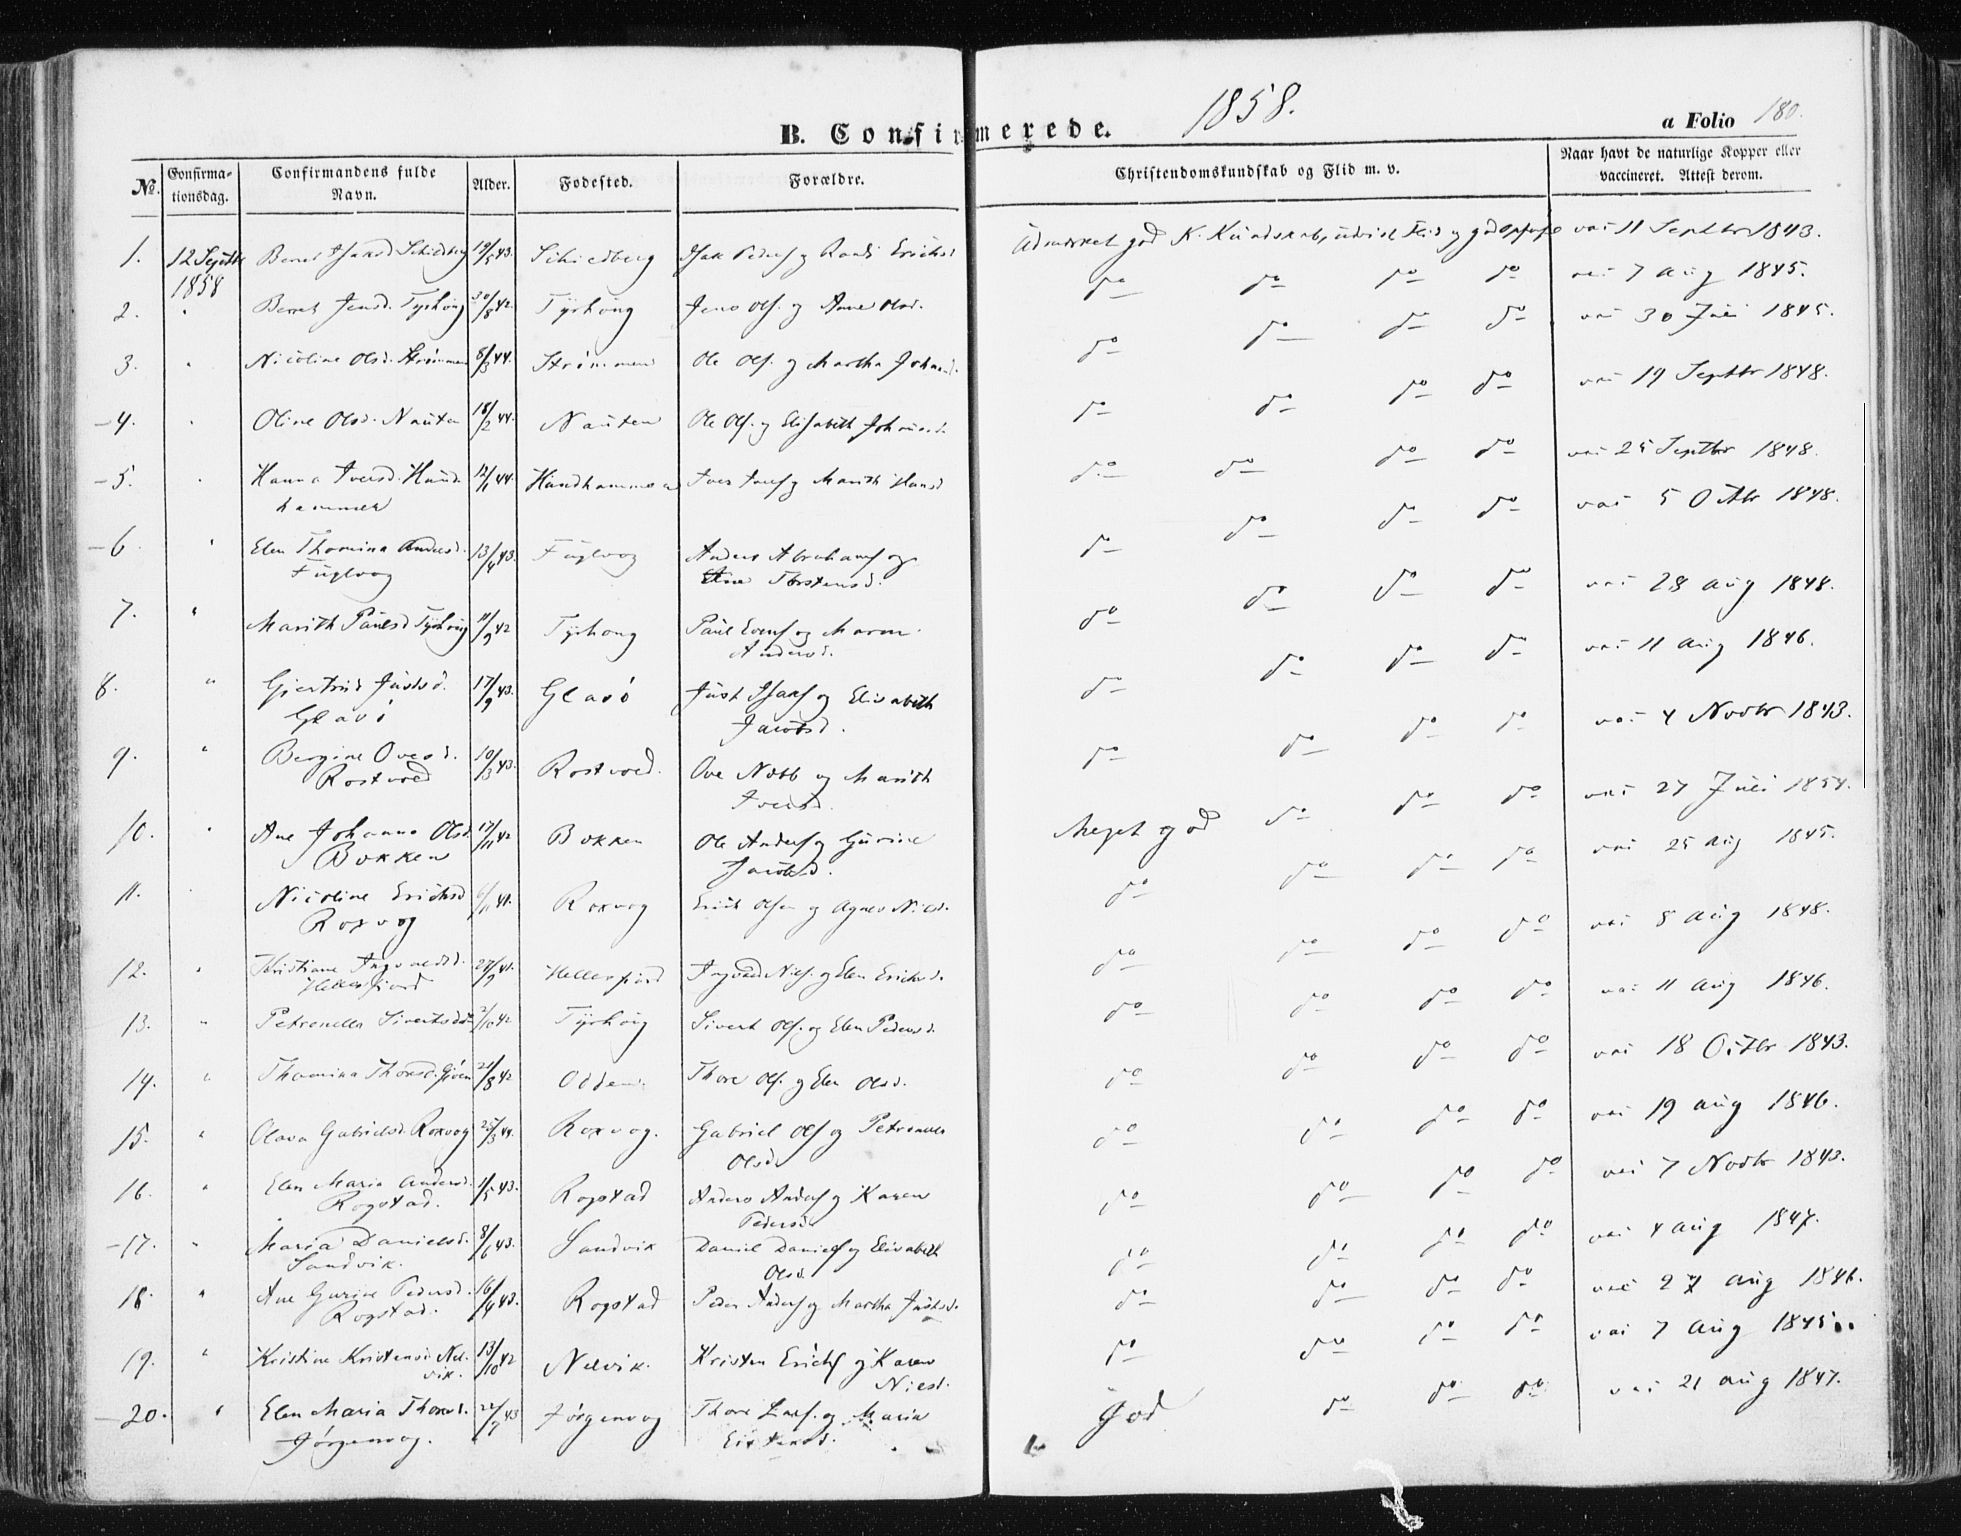 1858.
B. Confirmerede.
a Folio 180.
No. Confirmationsdag. Confirmandens fulde Navn. Alder. Fødested. Forældre. Christendomskundskab og Flid m. v. Naar havt de naturlige Kopper eller vaccineret. Attest derom.
1. 12 Septbr 1858 Beret Isaksd Schiedberg 19/5 43. Schiedberg Isak Peders og Randi Erichsd Udmærket god K. Kundskab, udvist Flid og god opførs vac 11 Septbr 1843.
2. " Beret Jensd. Tyrhoug 30/8 42. Tyrhoug Jens Ols. og Ane Olsd. do do do do vac 7 Aug 1845.
3. " Nicoline Olsd. Strømmen 8/3 44. Strømmen Ole Ols. og Martha Johansd. do do do do vac 30 Juli 1845.
4. " Oline Olsd. Nauten 18/2 44. Nauten Ole Ols. og Elisabeth Johansd. do do do do vac 19 Septbr 1848.
5. " Hanna Iversd. Hundhammer 12/1 44. Hundhammer Iver Ivers og Marith Hansd do do do do vac 25 Septbr 1848.
6. " Elen Thomina Andersd. Fuglvog 13/4 43. Fuglvog Anders Abrahams og Ane Torstensd. do do do do vac 5 Octbr 1848.
7. " Marith Paulsd Tyrhoug 11/9 42 Tyrhoug Paul Evens og Maren Andersd. do do do do vac 28 Aug 1848.
8. " Gjertrud Justsd. Glasø 17/9 43. Glasø Just Isaks og Elisabeth Jacobsd. do do do do vac 11 Aug 1846.
9. " Bergine Ovesd. Rostvoed 10/3 43. Rostvoed. Ove Nobb og Marith Iversd. do do do do vac 4 Novbr 1843.
10. " Ane Johanna Olsd. Bokken 17/11 42 Bokken Ole Anders og Gurine Jacobsd. Meget god do do do vac 27 Juli 1854.
11. " Nicoline Erichsd Roxvog 6/11 41. Roxvog Erich Olsen og Agnes Nielsd. do do do do vac 25 Aug 1845.
12. " Kristiane Ingvaldsd. Hellesfjord 27/9 41. Hellesfjord Ingvald Niels. og Elen Erichsd. do do do do vac 8 Aug 1848.
13. " Petronella Sivertsdtr 2/10 42 Tyrhoug Sivert Ols. og Elen Pedersd. do do do do vac 11 Aug 1846.
14. " Thomina Thoresd. Gjøen 21/8 42 Odden. Thore Ols. og Elen Olsd. do do do do vac 18 Octbr 1843.
15. " Olava Gabrielsd. Roxvog 25/3 44. Roxvog. Gabriel Ols og Petronella Olsd. do do do do vac 19 Aug 1846.
16. " Elen Maria Andersd. Rogstad. 1/5 43. Rogstad Anders Anders og Karen Pedersd. do do do do vac 7 Novbr 1843.
17. " Maria Danielsd. Sandvik. 8/6 43. Sandvik Daniel Daniels og Elisabeth Olsd. do do do do vac 4 Aug 1847.
18. " Ane Gurine Pedersd. Rogstad. 16/4 43. Rogstad Peder Anders og Martha Justsd. do do do do vac 27 Aug 1846.
19. " Kristine Kristensd Nelvik. 13/10 42 Nelvik. Kristen Erichs og Karen Nielsd. do do do do vac 7 Aug 1845.
20. " Elen Maria Thoresd. Jørgenvog. 22/7 43 Jørgenvog Thore Lars. og Maria Eistensd. God do do do vac 21 Aug 1847.